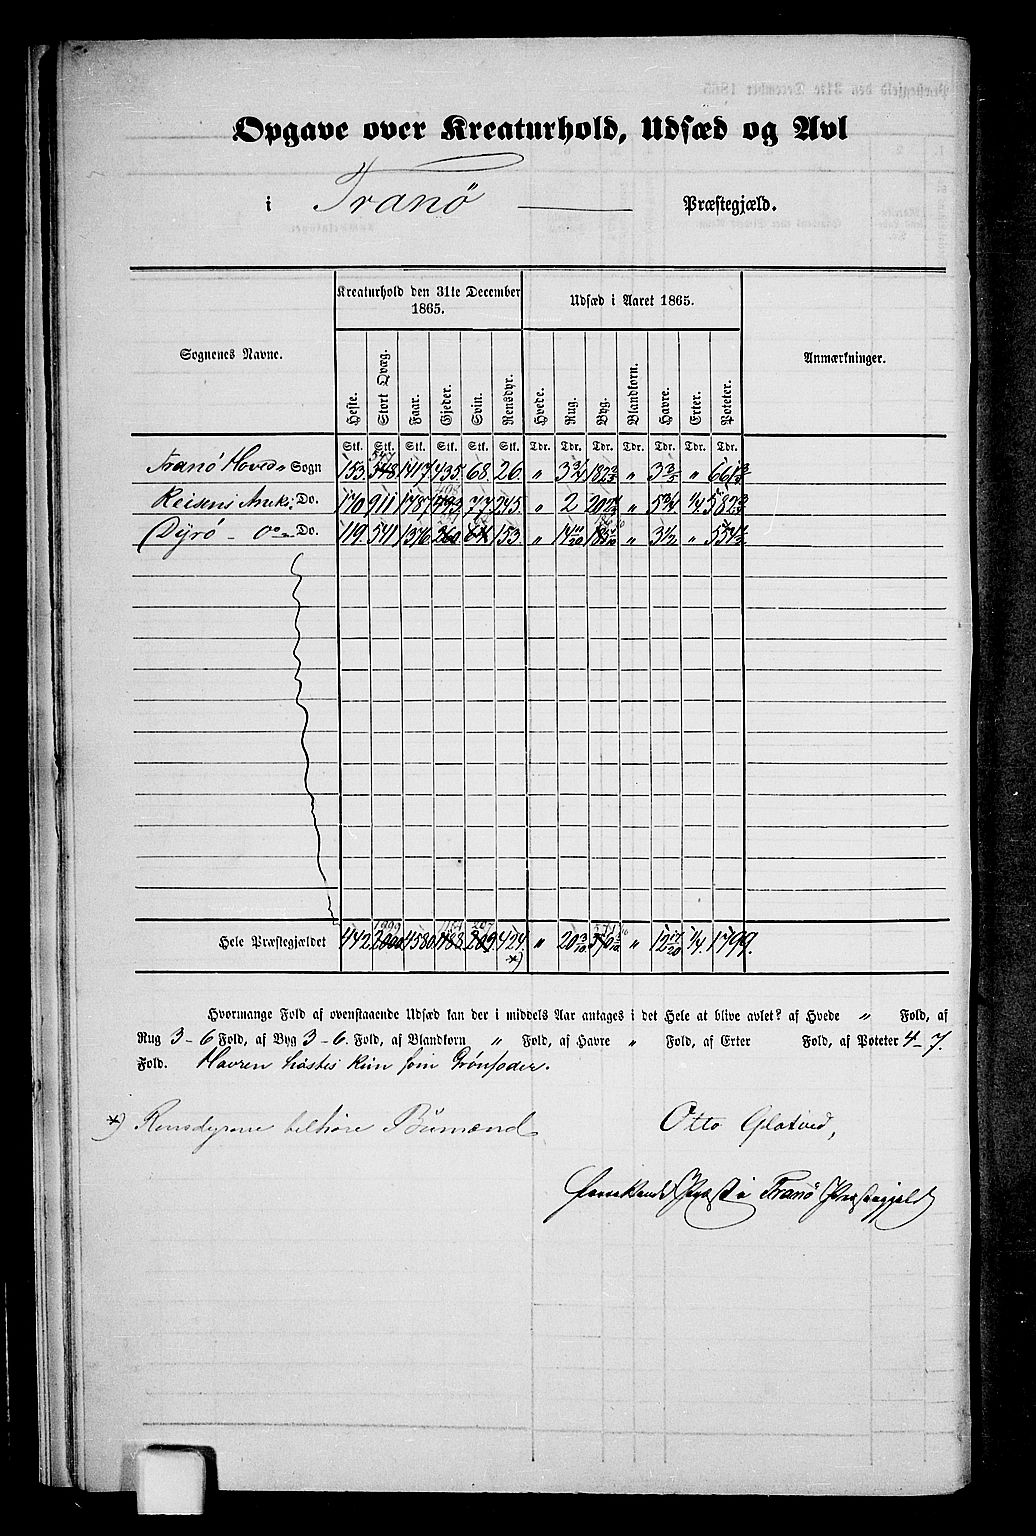 Opgave over Kreaturhold, Udsæd og Avl
i Tranö Præstegjæld.
Sognenes Navne. Kreaturhold den 31te December 1865. Udsæd i Aaret 1865. Anmærkninger.
Heste. Stort Qvæg. Faar. Gjeder. Svin. Rensdyr. Hvede. Rug. Byg. Blandkorn. Havre. Erter. Poteter.
Stk. Stk. Stk. Stk. Stk. Stk. Tdr. Tdr. Tdr. Tdr. Tdr. Tdr. Tdr.
547
Tranö Hoved Sogn 153. 548 1417 435. 68. 26. „ 3 3/4 „ „
Reisens Do. 170 911 1787 77 245. „ 2 „ 5 3/4 1/4 582
Dyrö Do. 119. 541 1376 260 64 153. „ „ 3 1/2 „ 554 1/2
1999 207
Hele Præstegjældet 442 2000 4580 1188 209 424. „ 20 3/10 „ 12 17/20 1/4. 1799.
*)
Hvormange Fold af ovenstaaende Udsæd kan der i middels Aar antages i det Hele at blive avlet? af Hvede „ Fold, af
Rug 3-6 Fold, af Byg 3-6. Fold, af Blandkorn „ Fold, af Havre „ Fold, af Erter Fold, af Poteter 4-7.
Fold. Havren høstes kun som Grønfoder.
*) Rensdyrene tilhøre Bumænd
Otto Glatved,
Præst i Tranö Præstegjeld